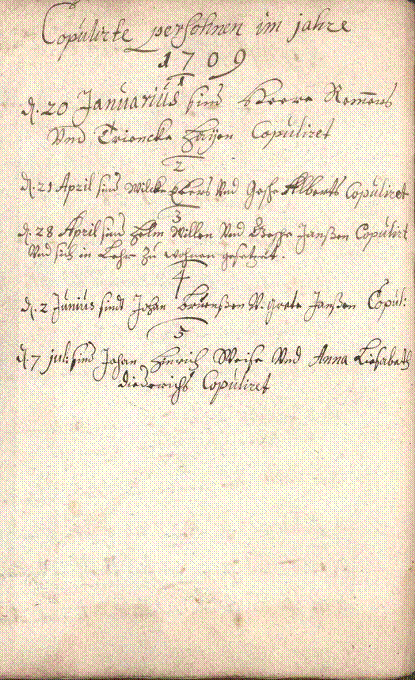 Copulirte persohnen im jahre
1709
1
d. 20 Januarius sind Heere Remmers
Und Triencke Haÿen Copuliret
2
d. 21 April sind Wilcke Ehlers Und Gesche Alberts Copuliret
3
d. 28 April sind Willen Und Janßen Copulirt
Und sich in Lehe zu wohnen gesetzet.
4
d. 2 Junius sindt Johan Grete Janßen Copul:
5
d. 7 jul: sind Johan Hinrich Weise Und Anna Liesabeth
diederichs Copuliret